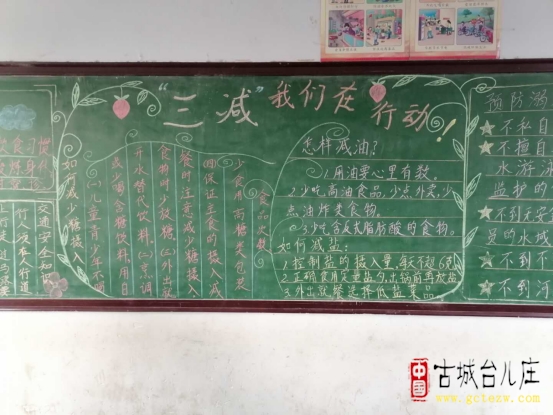 "三减"我们在行动!
如何减少糖摄入
(一)儿童青少年不喝
或少喝含糖饮料,用白
开水替代饮料.(二)烹调
食物时少放糖.(三)外出就
餐时注意减少糖摄入.
(四)保证主食的摄入减
少食用高糖类包装
食品次数
怎样减油?
1.用油要心里有数。
2.少吃高油食品,少点外卖,少
点油炸类食物。
3.少吃含反式脂肪酸的食物。
如何减盐:
1.控制盐的摄入量,每天不超6克
2.正确食用定量盐勺,出锅前再放盐
3.外出就餐选择低盐菜品
饮食习惯
交通安全知识
行人须在人行道
预防溺
★不私自
★不擅自
水游泳
监护的
★不到无安
员的水域
★不到不
★不到河
中國
古城台儿庄
www.gctezw.com